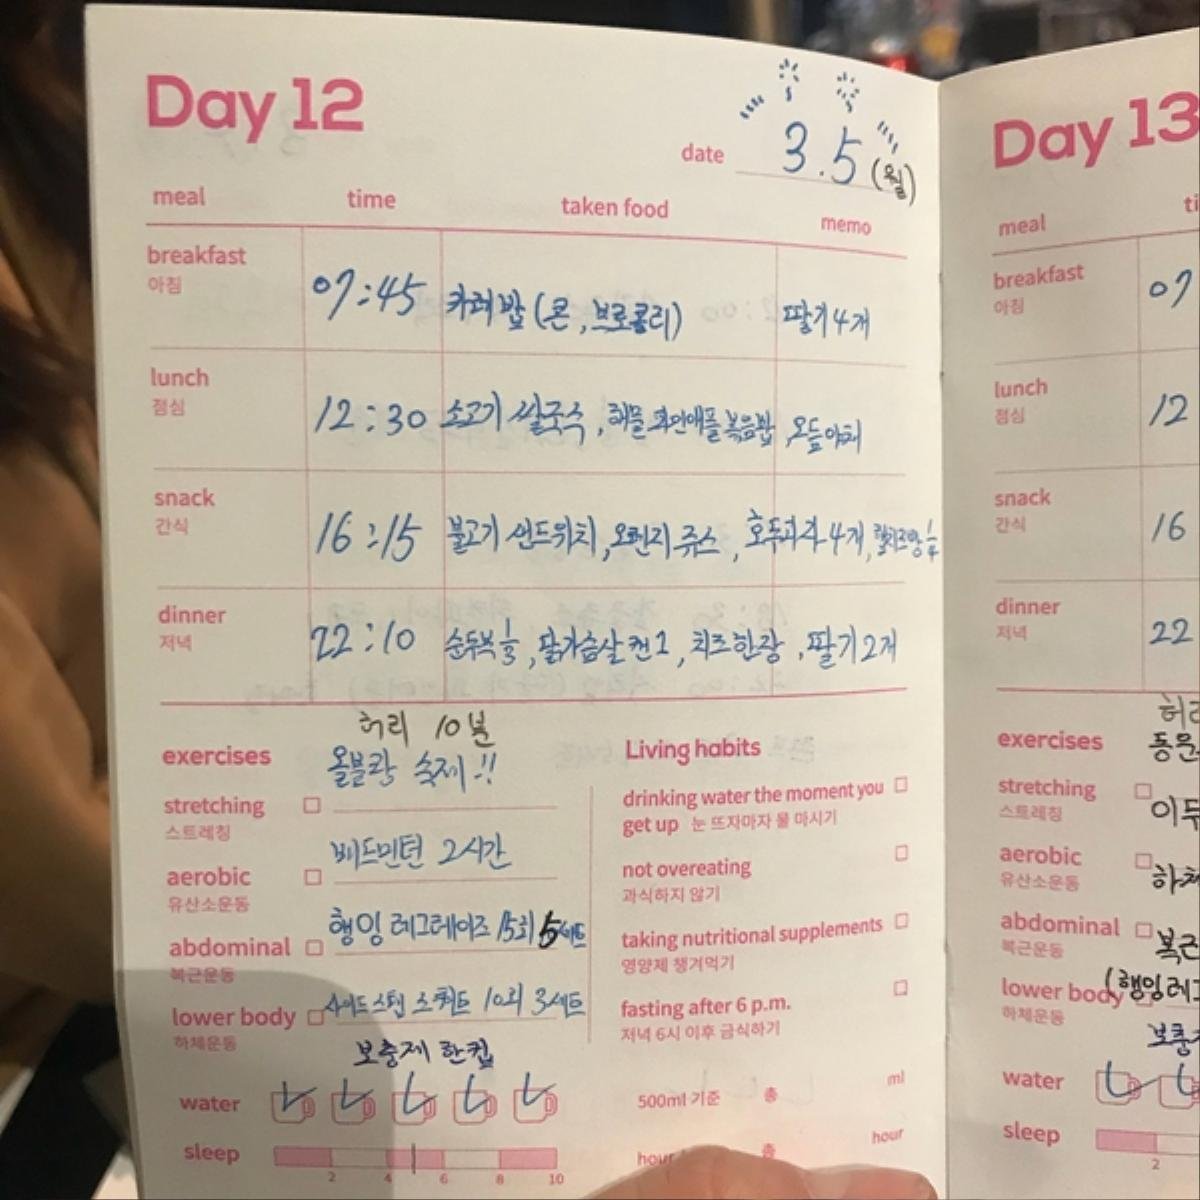 Day 12
date 3.5 (월)
meal time taken food memo
breakfast 07:45 카레밥 (콘, 브로콜리) 딸기 4개
아침
lunch 12:30 소고기 쌀국수, 해물 파인애플 볶음밥, 모듬야채
점심
snack 16:15 불고기 샌드위치, 오렌지 쥬스, 호두과자 4개,
간식
dinner 22:10 순두부 1/3, 닭가슴살 캔 1, 치즈 한장, 딸기 2개
저녁
허리 10분
exercises 올블랑 숙제!!
stretching
스트레칭
aerobic 배드민턴 2시간
유산소운동
abdominal 행잉 레그레이즈 15회 5세트
복근운동
lower body 사이드스텝 스쿼트 10회 3세트
하체운동
보충제 한컵
water
sleep
2 4 6 8 10
Living habits
drinking water the moment you
get up 눈 뜨자마자 물 마시기
not overeating
과식하지 않기
taking nutritional supplements
영양제 챙겨먹기
fasting after 6 p.m.
저녁 6시 이후 금식하기
500ml 기준 총 ml
hour 총 hour
Day 13
meal ti
breakfast 07
아침
lunch 12
점심
snack 16
간식
dinner 22
저녁
허리
exercises 등운
stretching 이두
스트레칭
aerobic 하체
유산소운동
abdominal 복근
복근운동 (행잉레그
lower body
하체운동
보충제
water
sleep
2